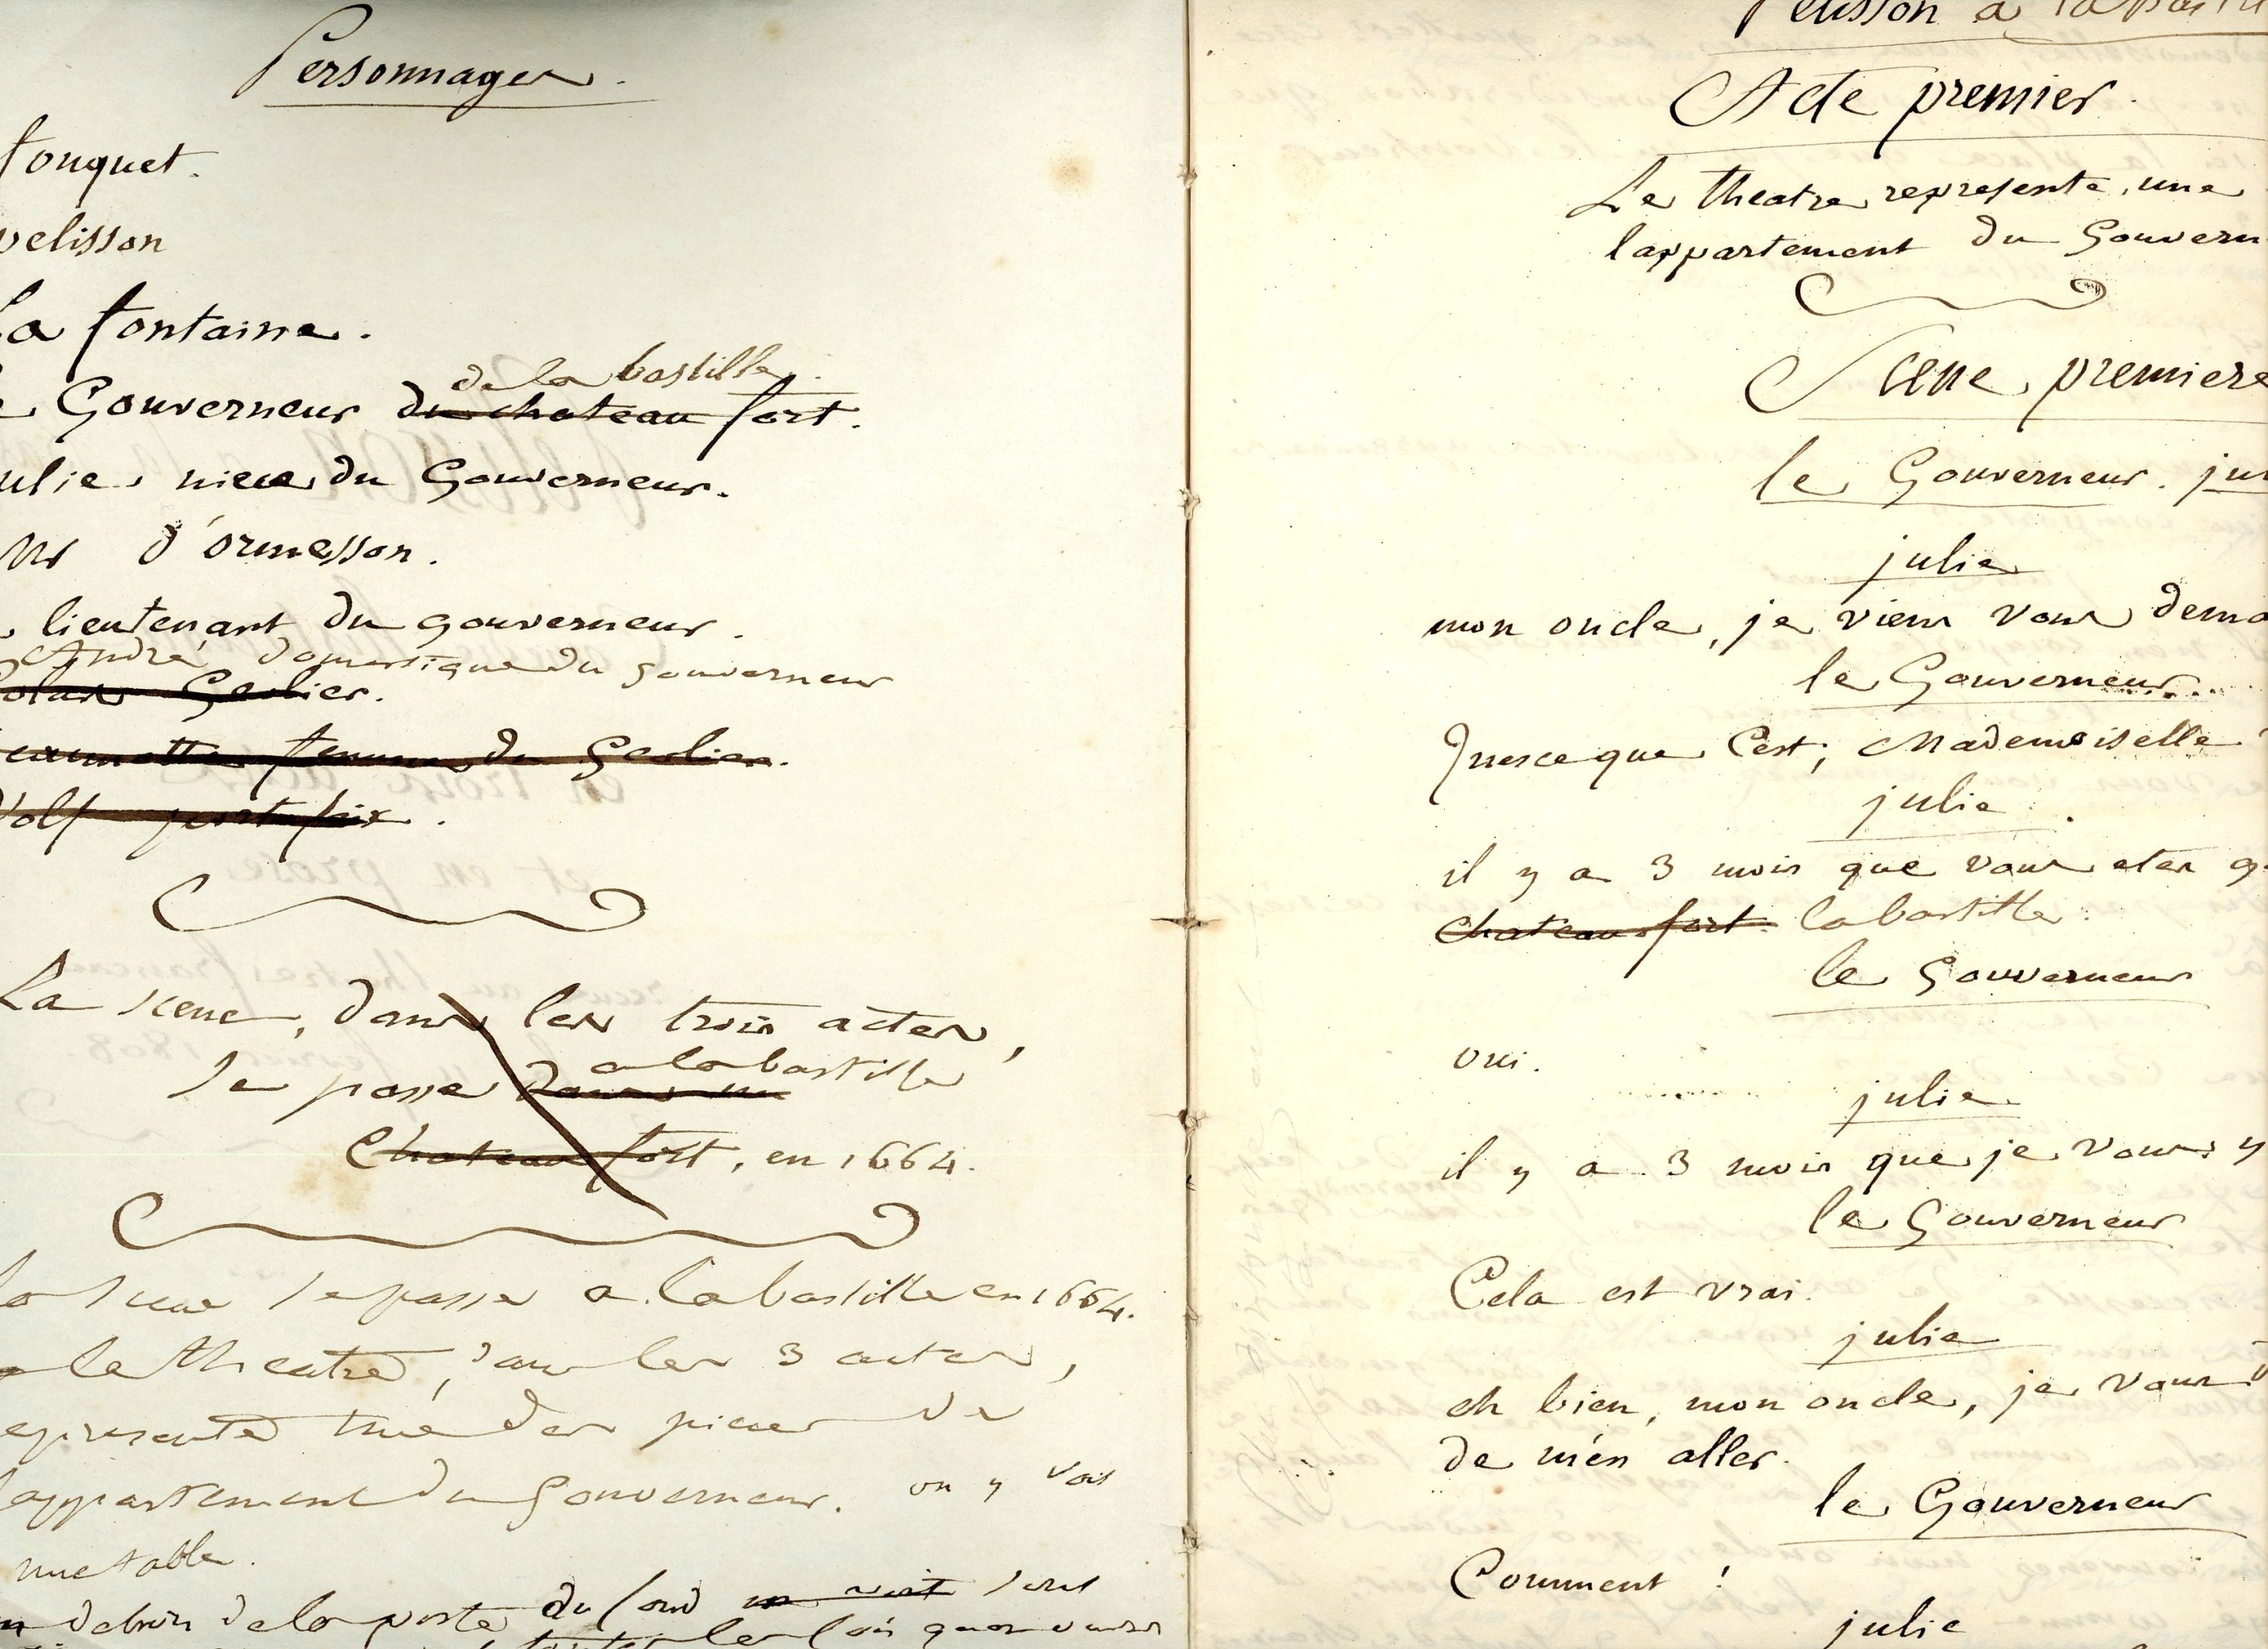 Personnages.
fouquet.
pelisson
La fontaine.
de la bastille.
Gouverneur du chateau fort.
ulie, niece du Gouverneur.
Mr d'ormesson.
lieutenant du gouverneur.
André domestique du gouverneur
Geolier.
femme du Geolier.
Wolf
La scene, dans les trois actes,
a la bastille
se passe dans un
Chateau fort, en 1664.
la scene se passe a la bastille en 1664.
le theatre, dans les 3 actes,
epresente une des pieces de
l'appartement du Gouverneur. on y voit
une table.
en dehors de la porte du fond on voit sont
toutes les fois
Pelisson a la bastill
Acte premier.
Le theatre represente, une
lappartement du Gouvern
Scene premiere
le Gouverneur. jul
julie
mon oncle, je viens vous dema
le Gouverneur
Quesceque c'est, Mademoiselle?
julie.
il y a 3 mois que vous etes g
chateau fort. la bastille.
le Gouverneur
oui.
julie
il y a 3 mois que je vous y
le Gouverneur
Cela est vrai.
julie
eh bien, mon oncle, je vous d
de m'en aller.
le Gouverneur
Comment !
julie